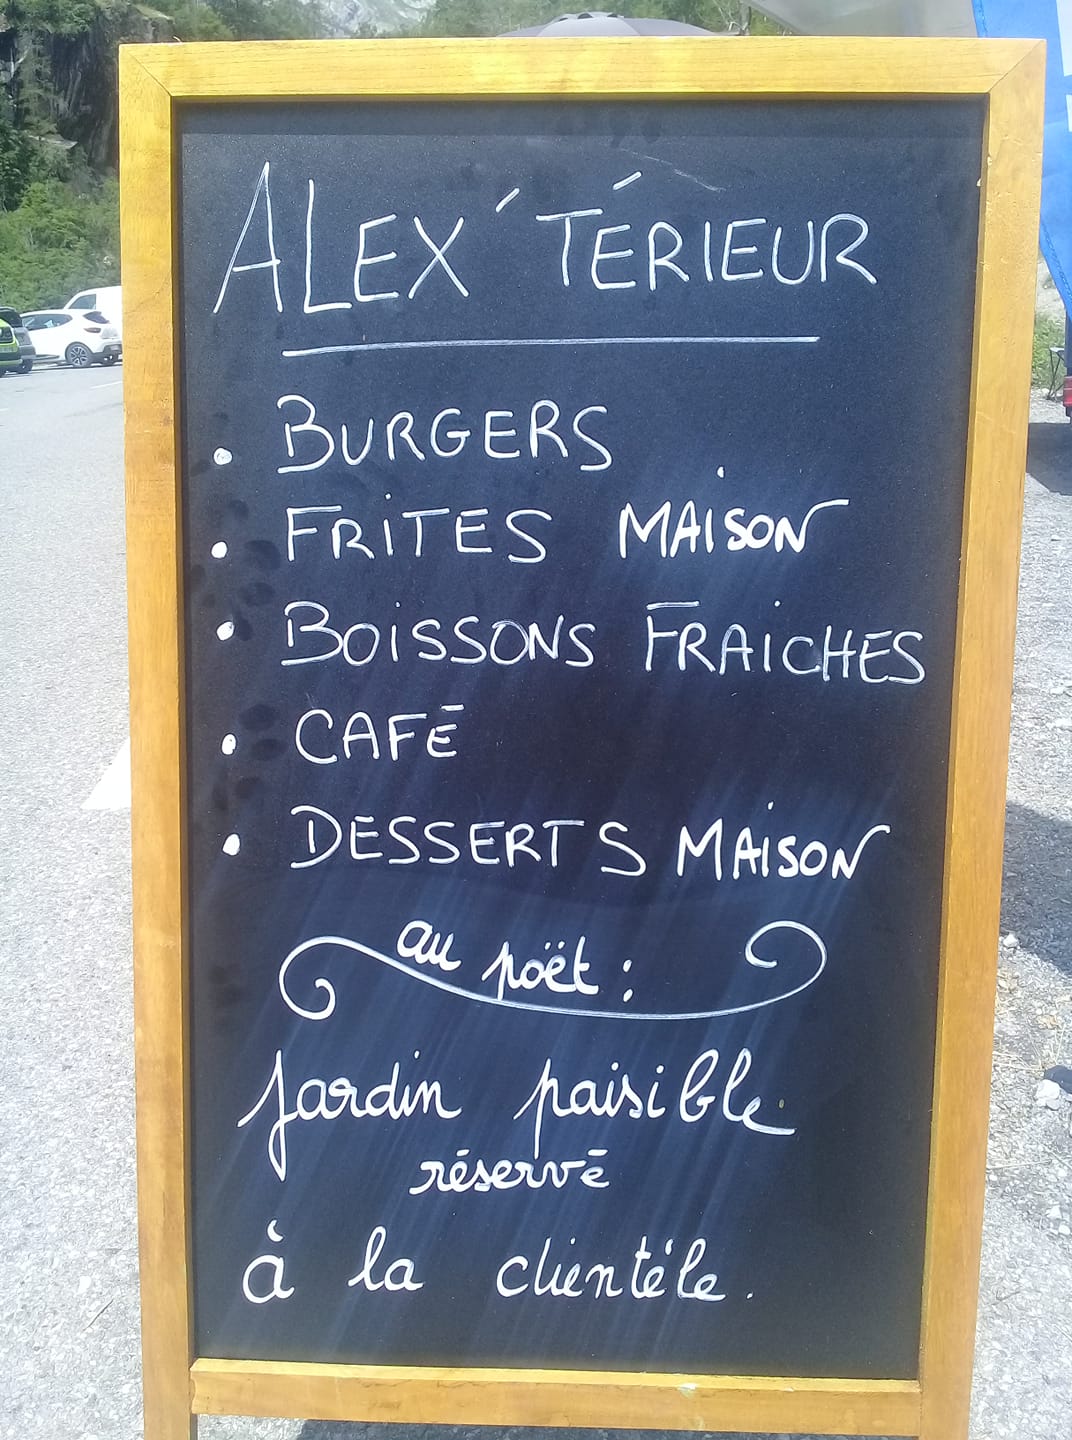 ALEX'TÉRIEUR
• BURGERS
• FRITES MAISON
• BOISSONS FRAICHES
• CAFÉ
• DESSERTS MAISON
au poët :
Jardin paisible
réservé
à la clientèle.